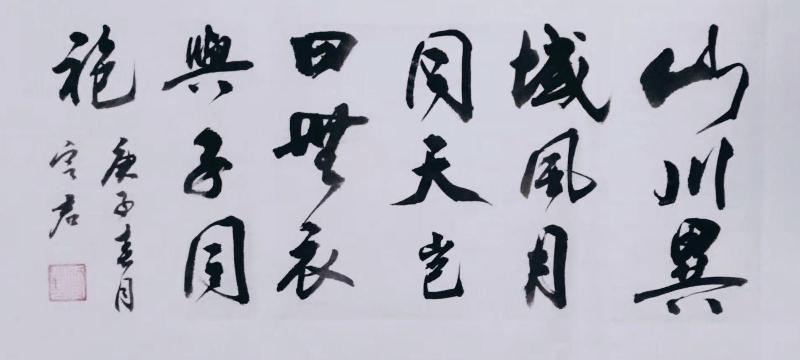 山川異
域風月
同天豈
曰無衣
與子同
袍
庚子春月
宮君